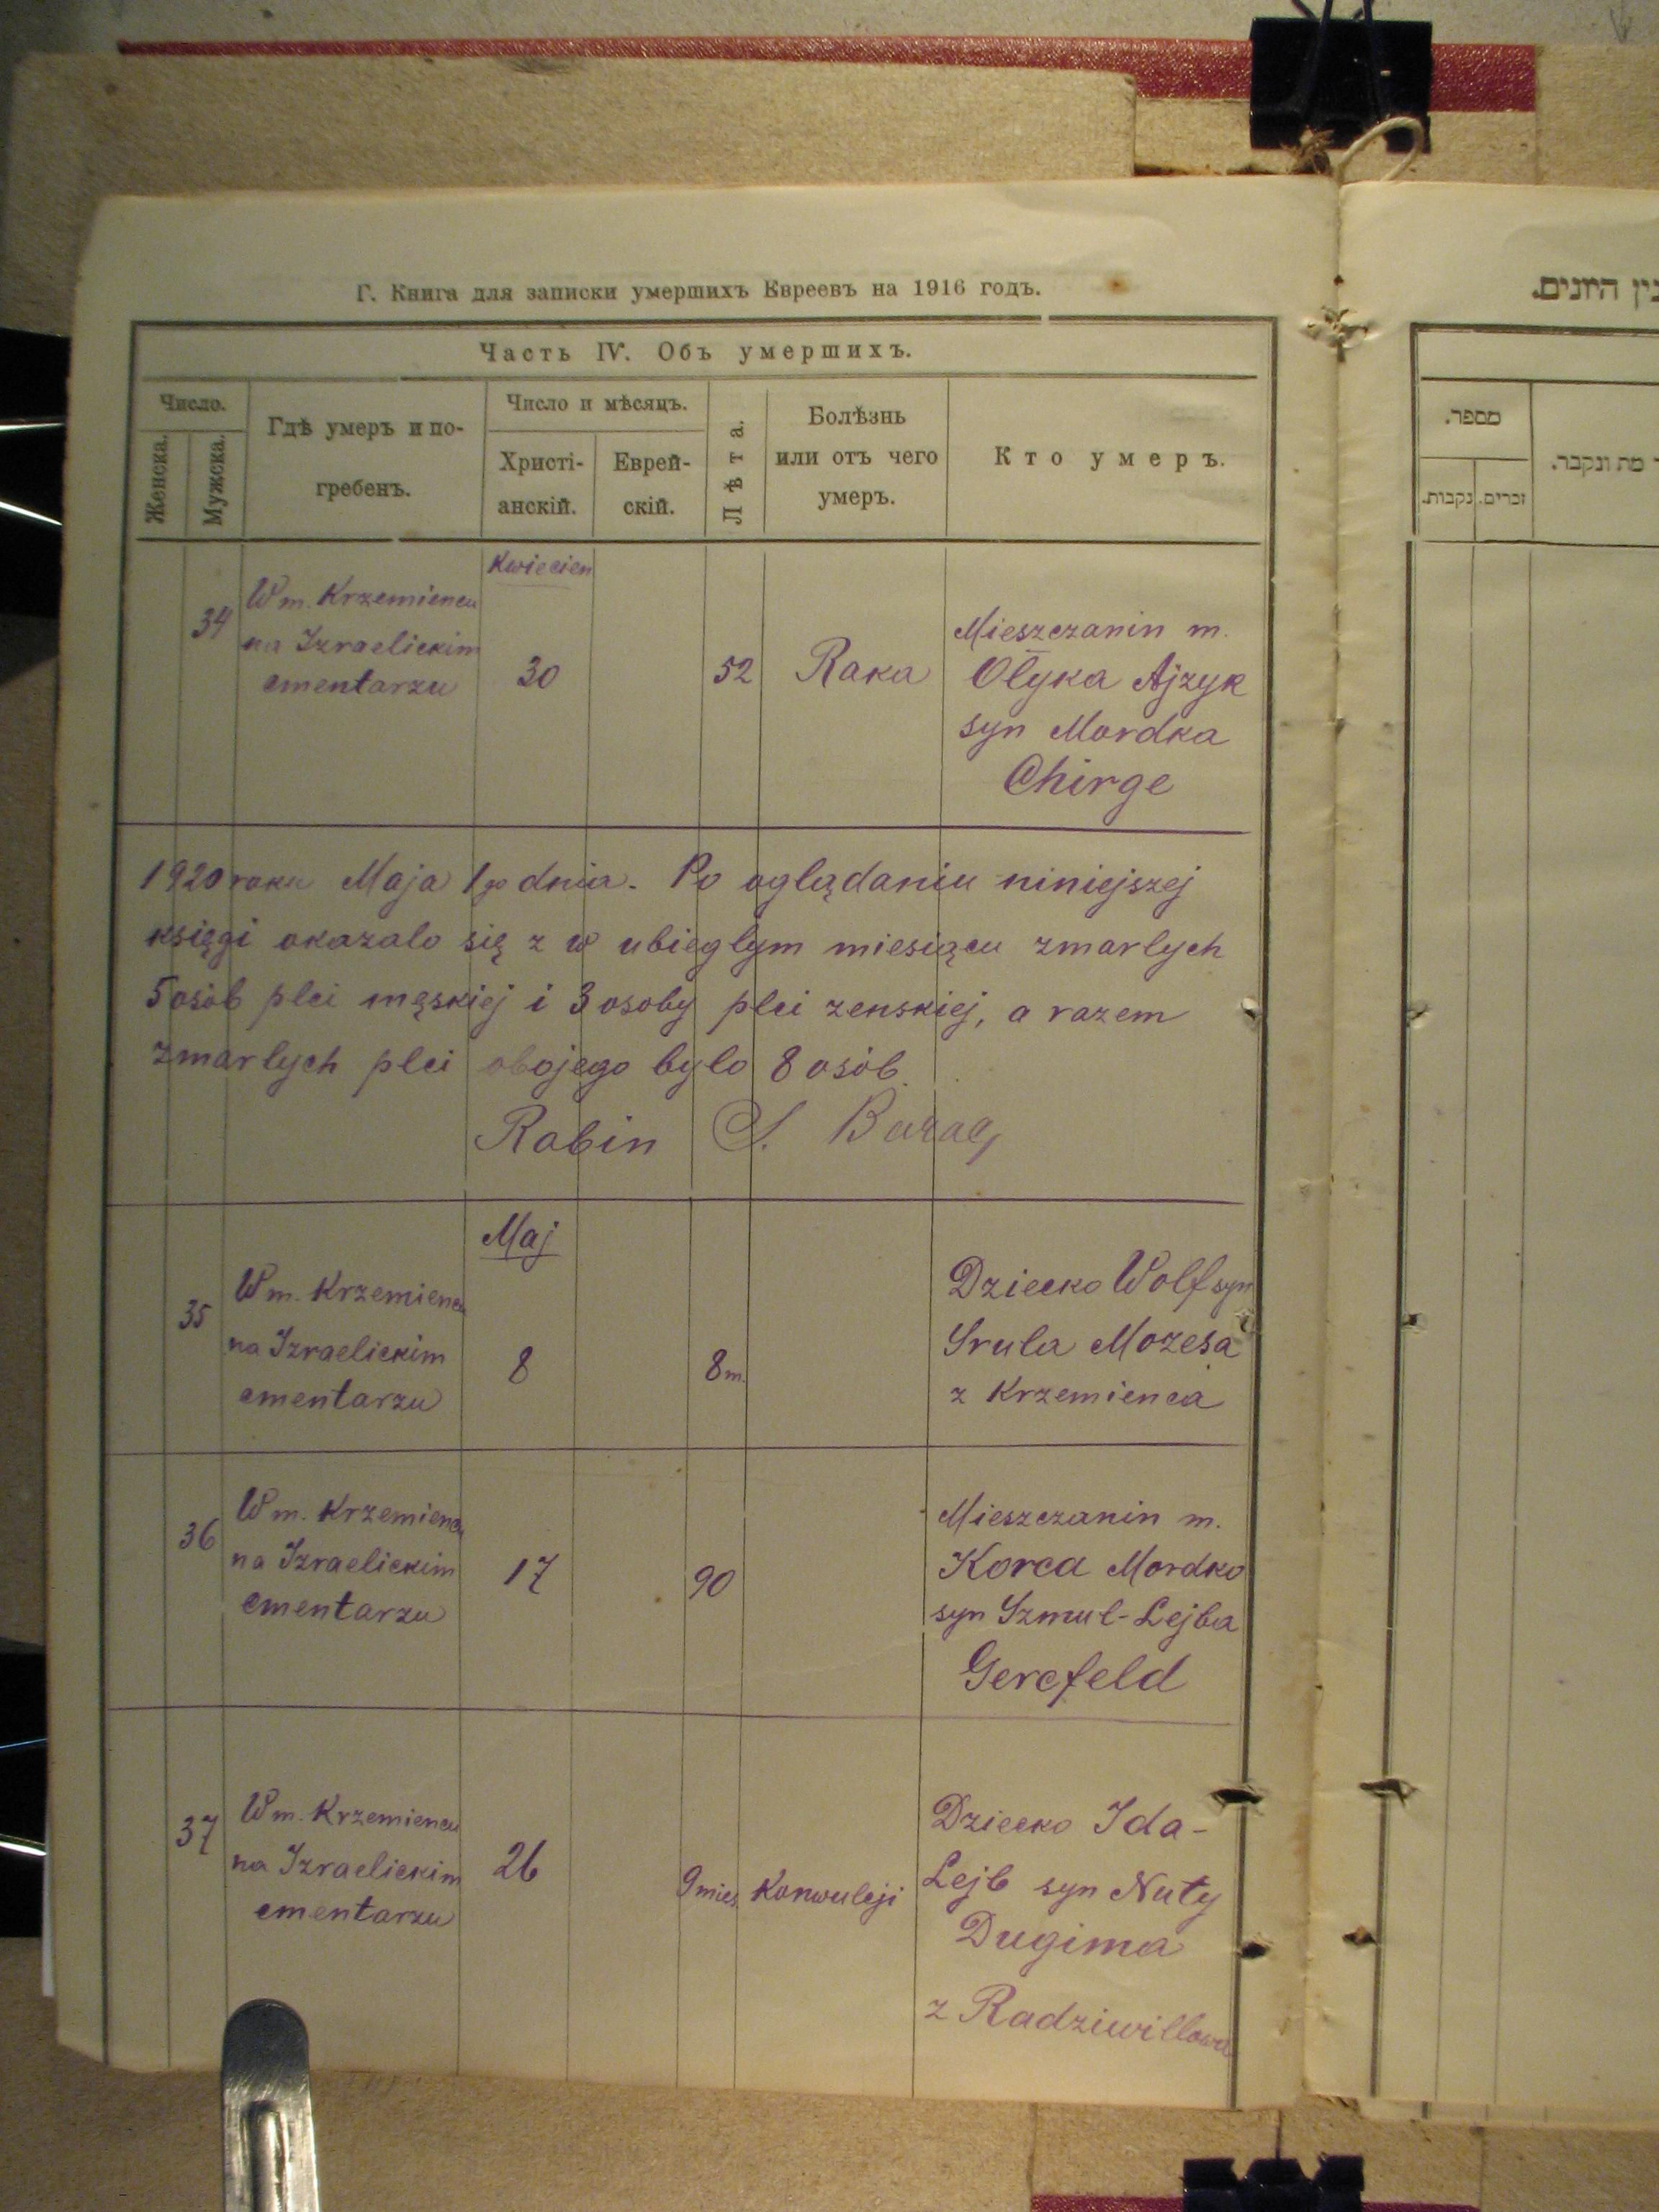 Г. Книга для записки умершихъ Евреевъ на 1916 годъ.
Часть IV. Объ умершихъ.
Число.
Женска.
Мужска.
Гдѣ умеръ и по-
гребенъ.
Число и мѣсяцъ.
Христі-
анскій.
Еврей-
скій.
Лѣта.
Болѣзнь
или отъ чего
умеръ.
Кто умеръ.
Kwiecien
34
W m. Krzemiencu
na Izraelickim
cmentarzu
30
52
Raka
Mieszczanin m.
Olyka Ajzyk
syn Mordka
Chirge
1920 roku Maja 1go dnia. Po oglądaniu niniejszej
księgi okazalo się z w ubieglym miesiącu zmarlych
5 osób plci męskiej i 3 osoby plci zenskiej, a razem
zmarlych plci obojego bylo 8 osób.
Rabin S. Barag
Maj
35
W m. Krzemiencu
na Izraelickim
cmentarzu
8
8 m.
Dziecko Wolf syn
Srula Mozesa
z Krzemienca
36
W m. Krzemiencu
na Izraelickim
cmentarzu
17
90
Mieszczanin m.
Korca Mordko
syn Szmul-Lejba
Gercfeld
37
W m. Krzemiencu
na Izraelickim
cmentarzu
26
9 mies.
Konwulcji
Dziecko Ida-
Lejb syn Nuty
Dugima
z Radziwillowa
בין היונים.
מספר.
זכרים.
נקבות.
מת ונקבר.